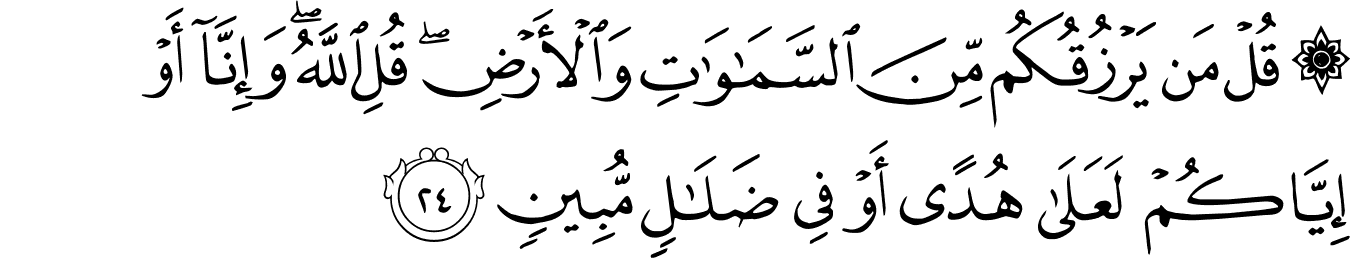 ۞ قُلْ مَن يَرْزُقُكُم مِّنَ ٱلسَّمَـٰوَٰتِ وَٱلْأَرْضِ ۖ قُلِ ٱللَّهُ ۖ وَإِنَّآ أَوْ
إِيَّاكُمْ لَعَلَىٰ هُدًى أَوْ فِى ضَلَـٰلٍ مُّبِينٍ ٢٤